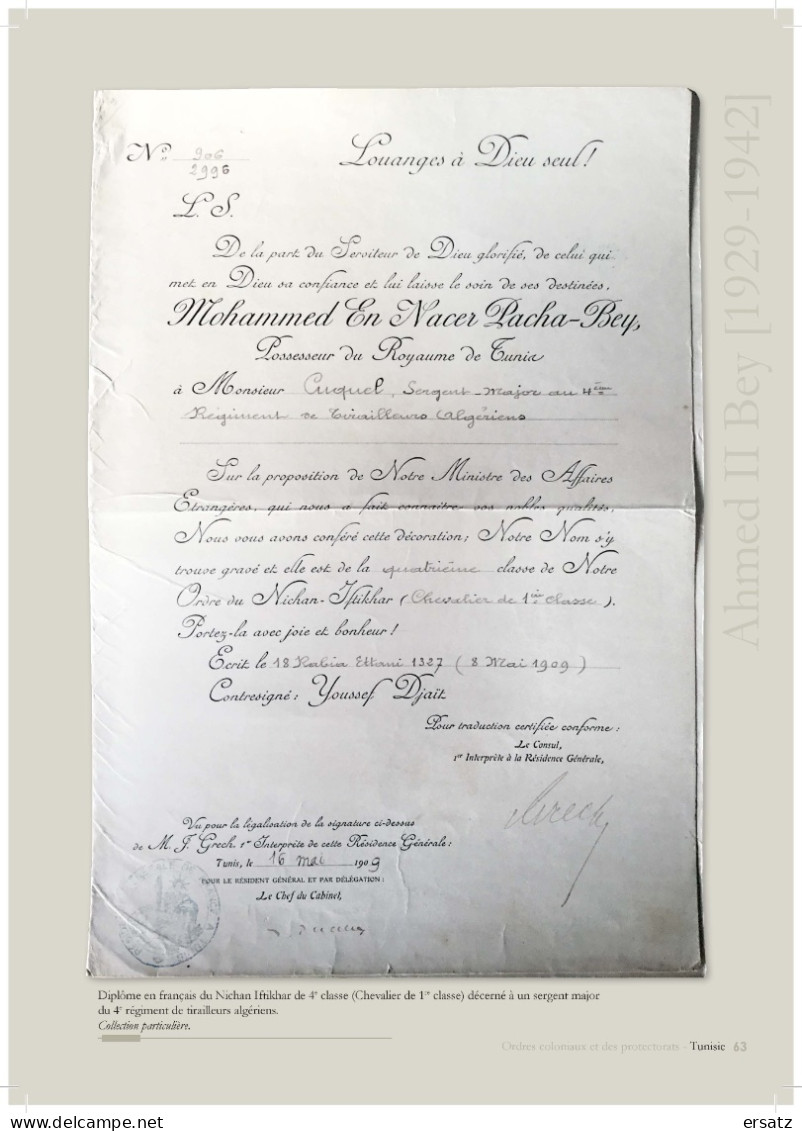 Nº 906
2996
Louanges à Dieu seul !
L. S.
De la part du Serviteur de Dieu glorifié, de celui qui
met en Dieu sa confiance et lui laisse le soin de ses destinées,
Mohammed En Nacer Pacha-Bey,
Possesseur du Royaume de Tunis
à Monsieur Cuquel, Sergent-Major au 4ème
Régiment de Tirailleurs Algériens
Sur la proposition de Notre Ministre des Affaires
Etrangères, qui nous a fait connaître vos nobles qualités,
Nous vous avons conféré cette décoration; Notre Nom s'y
trouve gravé et elle est de la quatrième classe de Notre
Ordre du Nichan-Iftikhar (Chevalier de 1ère classe).
Portez-la avec joie et bonheur !
Ecrit le 18 Rabia Ettani 1327 (8 Mai 1909)
Contresigné : Youssef Djaït
Pour traduction certifiée conforme :
Le Consul,
1er Interprète à la Résidence Générale,
Grech
Vu pour la légalisation de la signature ci-dessus
de M. J. Grech, 1er Interprète de cette Résidence Générale :
Tunis, le 16 mai 1909
POUR LE RÉSIDENT GÉNÉRAL ET PAR DÉLÉGATION :
Le Chef du Cabinet,
Ahmed II Bey [1929-1942]
Diplôme en français du Nichan Iftikhar de 4e classe (Chevalier de 1re classe) décerné à un sergent major
du 4e régiment de tirailleurs algériens.
Collection particulière.
Ordres coloniaux et des protectorats - Tunisie 63
delcampe.net
ersatz